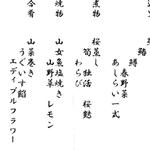 鱒
春野菜
あしらい一式
煮物
桜蒸し
筍 独活 桜麩
わらび
焼物
山女魚塩焼き
山野草 レモン
合肴
山菜巻き
うぐいす餡
エディブルフラワー